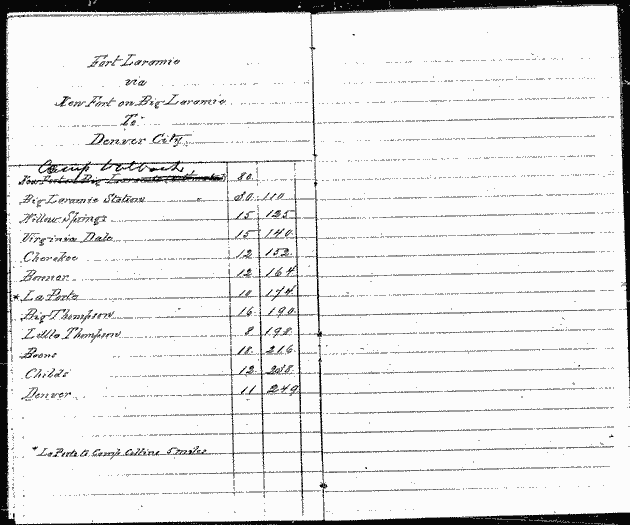 Fort Laramie
via
New Fort on Big Laramie
To
Denver City
Camp Walbach
New Fort on Big Laramie 80
Big Laramie Station 30 110
Willow Springs 15 125
Virginia Dale 15 140
Cherokee 12 152
Bonner 12 164
* La Porte 10 174
Big Thompson 16 190
Little Thompson 8 198
Boons 18 216
Childs 12
Denver 11 249
* La Porte to Camp Collins 5 miles